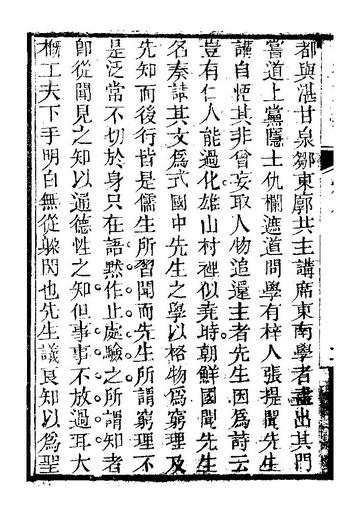 都與湛甘泉鄒東郭共主講席東南學者盡出其門
嘗道上黨隱士仇欄遮道問學有梓人張提聞先生
講自悟其非曾妄取人物追還主者先生因爲詩云
豈有仁人能過化雄山村裡似堯時朝鮮國聞先生
名奏請其文爲式國中先生之學以格物爲窮理及
先知而後行皆是儒生所習聞而先生所謂窮理不
是泛常不切於身只在語默作止處驗之所謂知者
卽從聞見之知以通德性之知但事事不放過耳大
槪工夫下手明白無從躱閃也先生議良知以爲聖